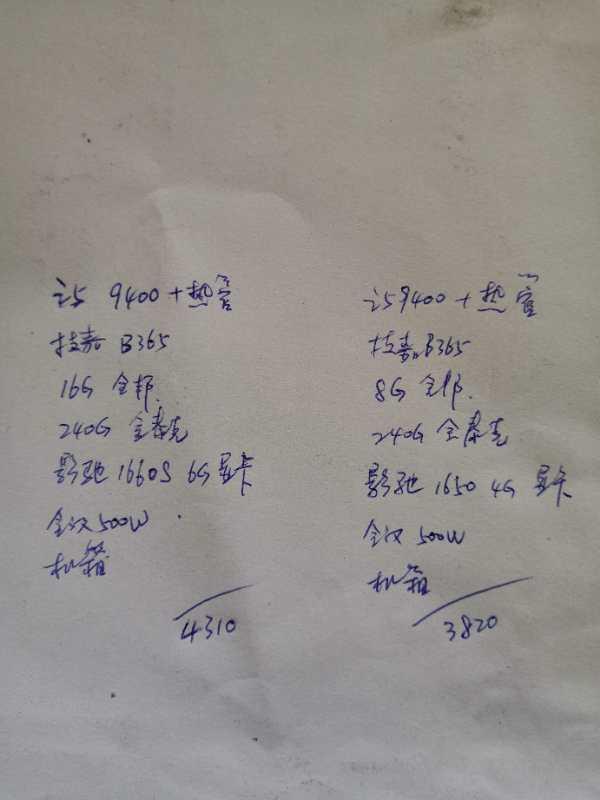 i5 9400 + 热管
技嘉 B365
16G 金邦
240G 金泰克
影驰 1660S 6G 显卡
全汉 500W
机箱
4310
i5 9400 + 热管
技嘉 B365
8G 金邦
240G 金泰克
影驰 1650 4G 显卡
全汉 500W
机箱
3820